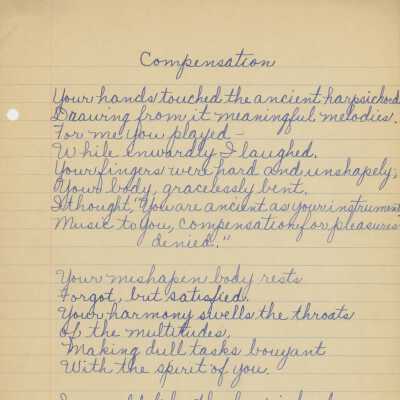 Compensation
Your hands touched the ancient harpsichord
Drawing from it meaningful melodies.
For me you played –
While inwardly I laughed.
Your fingers were hard and unshapely,
Your body, gracelessly bent.
I thought, "You are ancient as your instrument
Music to you, compensation for pleasures
denied."
Your mishapen body rests
Forgot, but satisfied.
Your harmony swells the throats
Of the multitudes,
Making dull tasks bouyant
With the spirit of you.